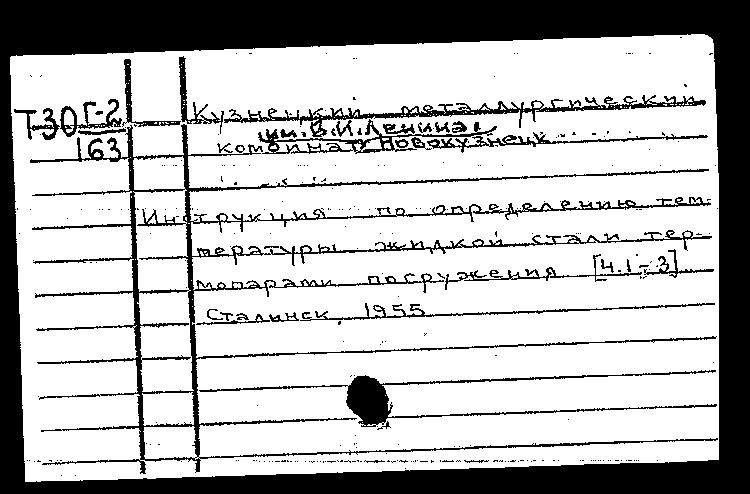 Т30 Г-2
163
Кузнецкий металлургический
им. В.И. Ленина.
комбинат, Новокузнецк
Инструкция по определению тем-
пературы жидкой стали тер-
мопарами погружения [Ч.1-3]
Сталинск, 1955